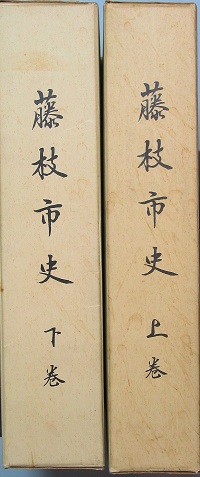 藤枝市史 上巻
藤枝市史 下巻